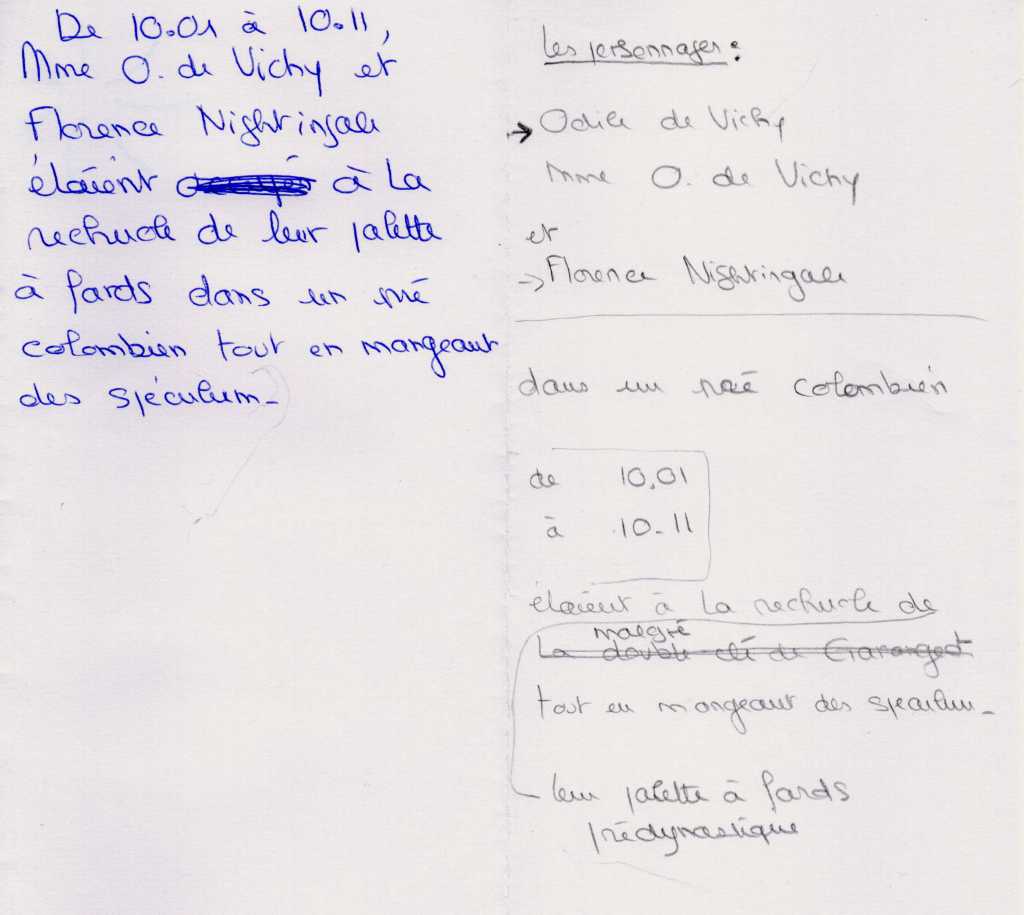 De 10.01 à 10.11,
Mme O. de Vichy et
Florence Nightingale
étaient à la
recherche de leur palette
à fards dans un ré
colombien tout en mangeant
des spéculum_
Les personnages :
→ Odile de Vichy
Mme O. de Vichy
et
→ Florence Nightingale
dans un ré colombien
de 10.01
à 10.11
étaient à la recherche de
malgré
la double clé de Garangeot
tout en mangeant des spéculum_
leur palette à fards
prédynastique